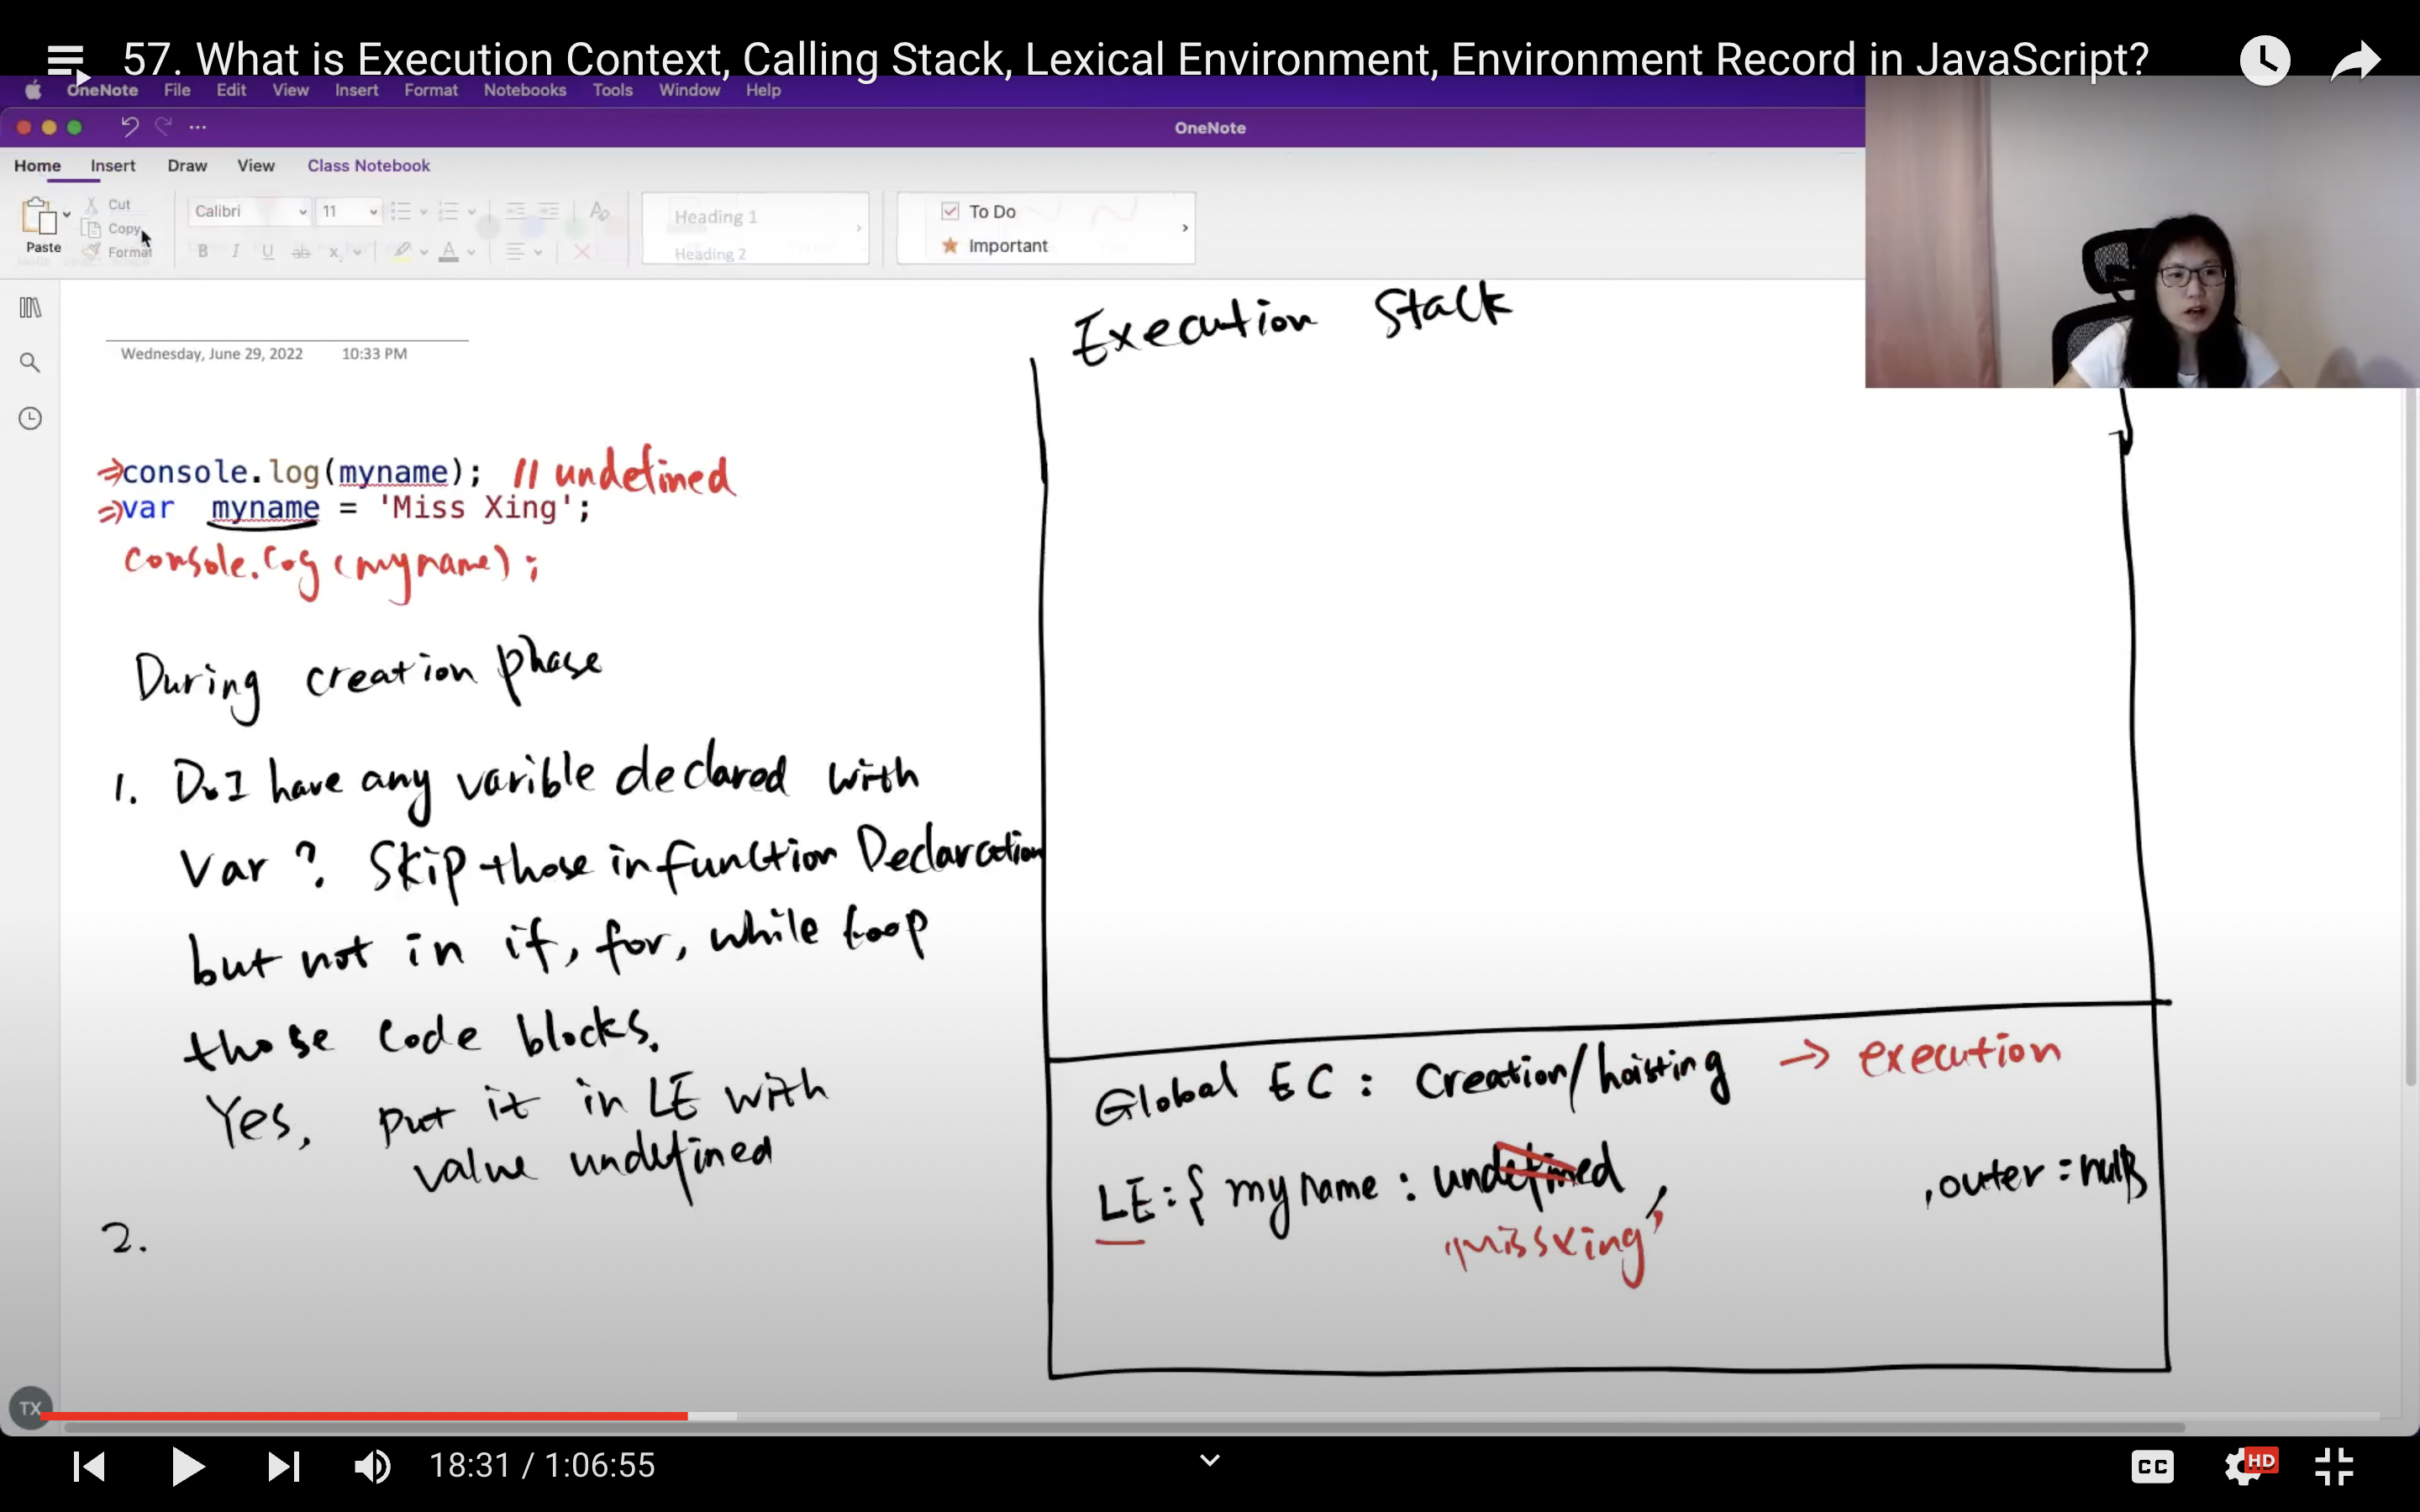 57. What is Execution Context, Calling Stack, Lexical Environment, Environment Record in JavaScript?
OneNote File Edit View Insert Format Notebooks Tools Window Help
OneNote
Home Insert Draw View Class Notebook
Paste
Cut
Copy
Format
Calibri 11
B I U ab x A
Heading 1
Heading 2
To Do
Important
Wednesday, June 29, 2022 10:33 PM
Execution Stack
⇒console.log(myname); // undefined
⇒var myname = 'Miss Xing';
console.log(myname);
During creation phase
1. Do I have any varible declared with
Var ? Skip those in function Declaration
but not in if, for, while loop
those code blocks.
Yes, put it in LE with
value undefined
2.
Global EC : Creation/hoisting → execution
LE:{ myname : undefined , , outer : null}
'missxing'
TX
18:31 / 1:06:55
CC
HD